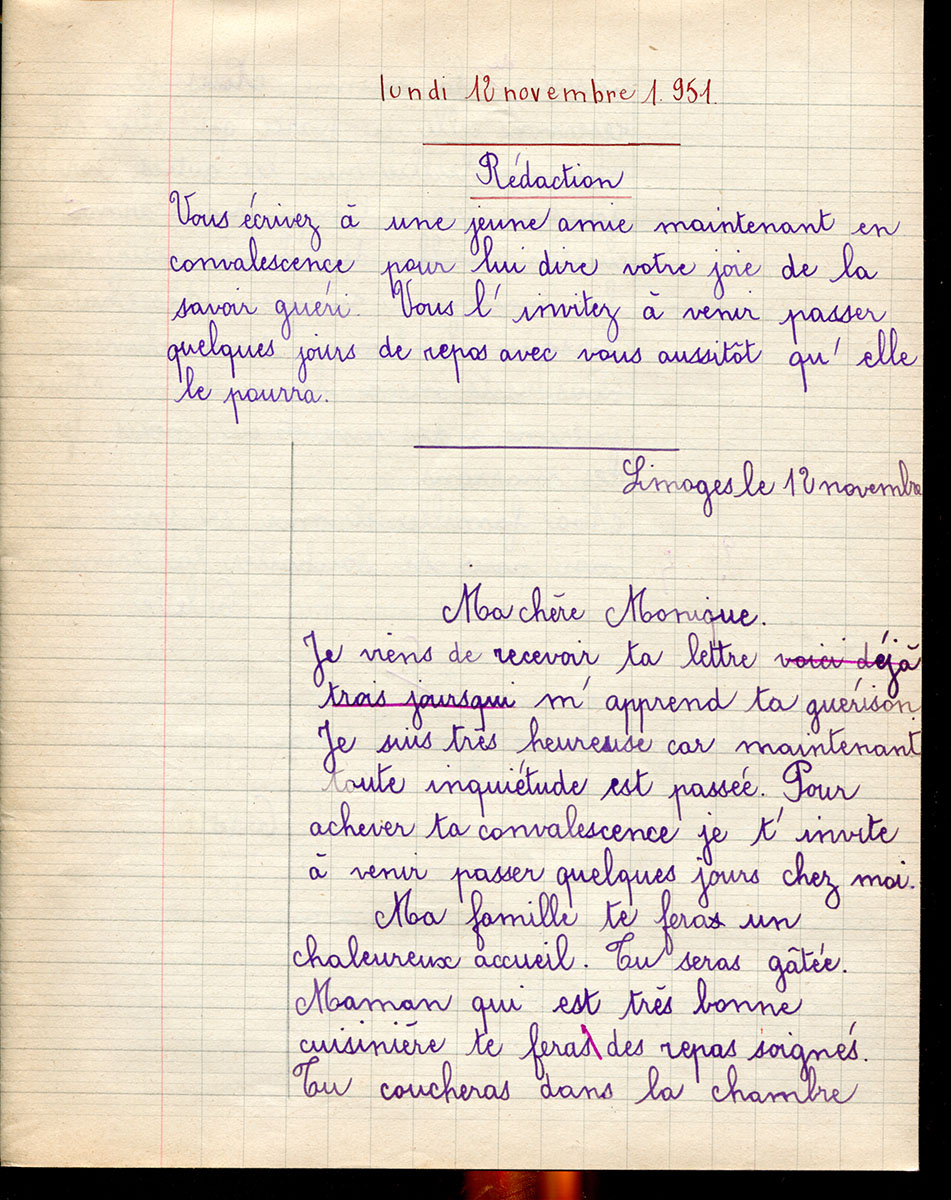 lundi 12 novembre 1.951.
Rédaction
Vous écrivez à une jeune amie maintenant en
convalescence pour lui dire votre joie de la
savoir guéri. Vous l'invitez à venir passer
quelques jours de repos avec vous aussitôt qu'elle
le pourra.
Limoges le 12 novembre
Ma chère Monique.
Je viens de recevoir ta lettre voici déjà
trois jours qui m'apprend ta guérison
Je suis très heureuse car maintenant
toute inquiétude est passée. Pour
achever ta convalescence je t'invite
à venir passer quelques jours chez moi.
Ma famille te feras un
chaleureux accueil. Tu seras gâtée.
Maman qui est très bonne
cuisinière te feras des repas soignés.
Tu coucheras dans la chambre